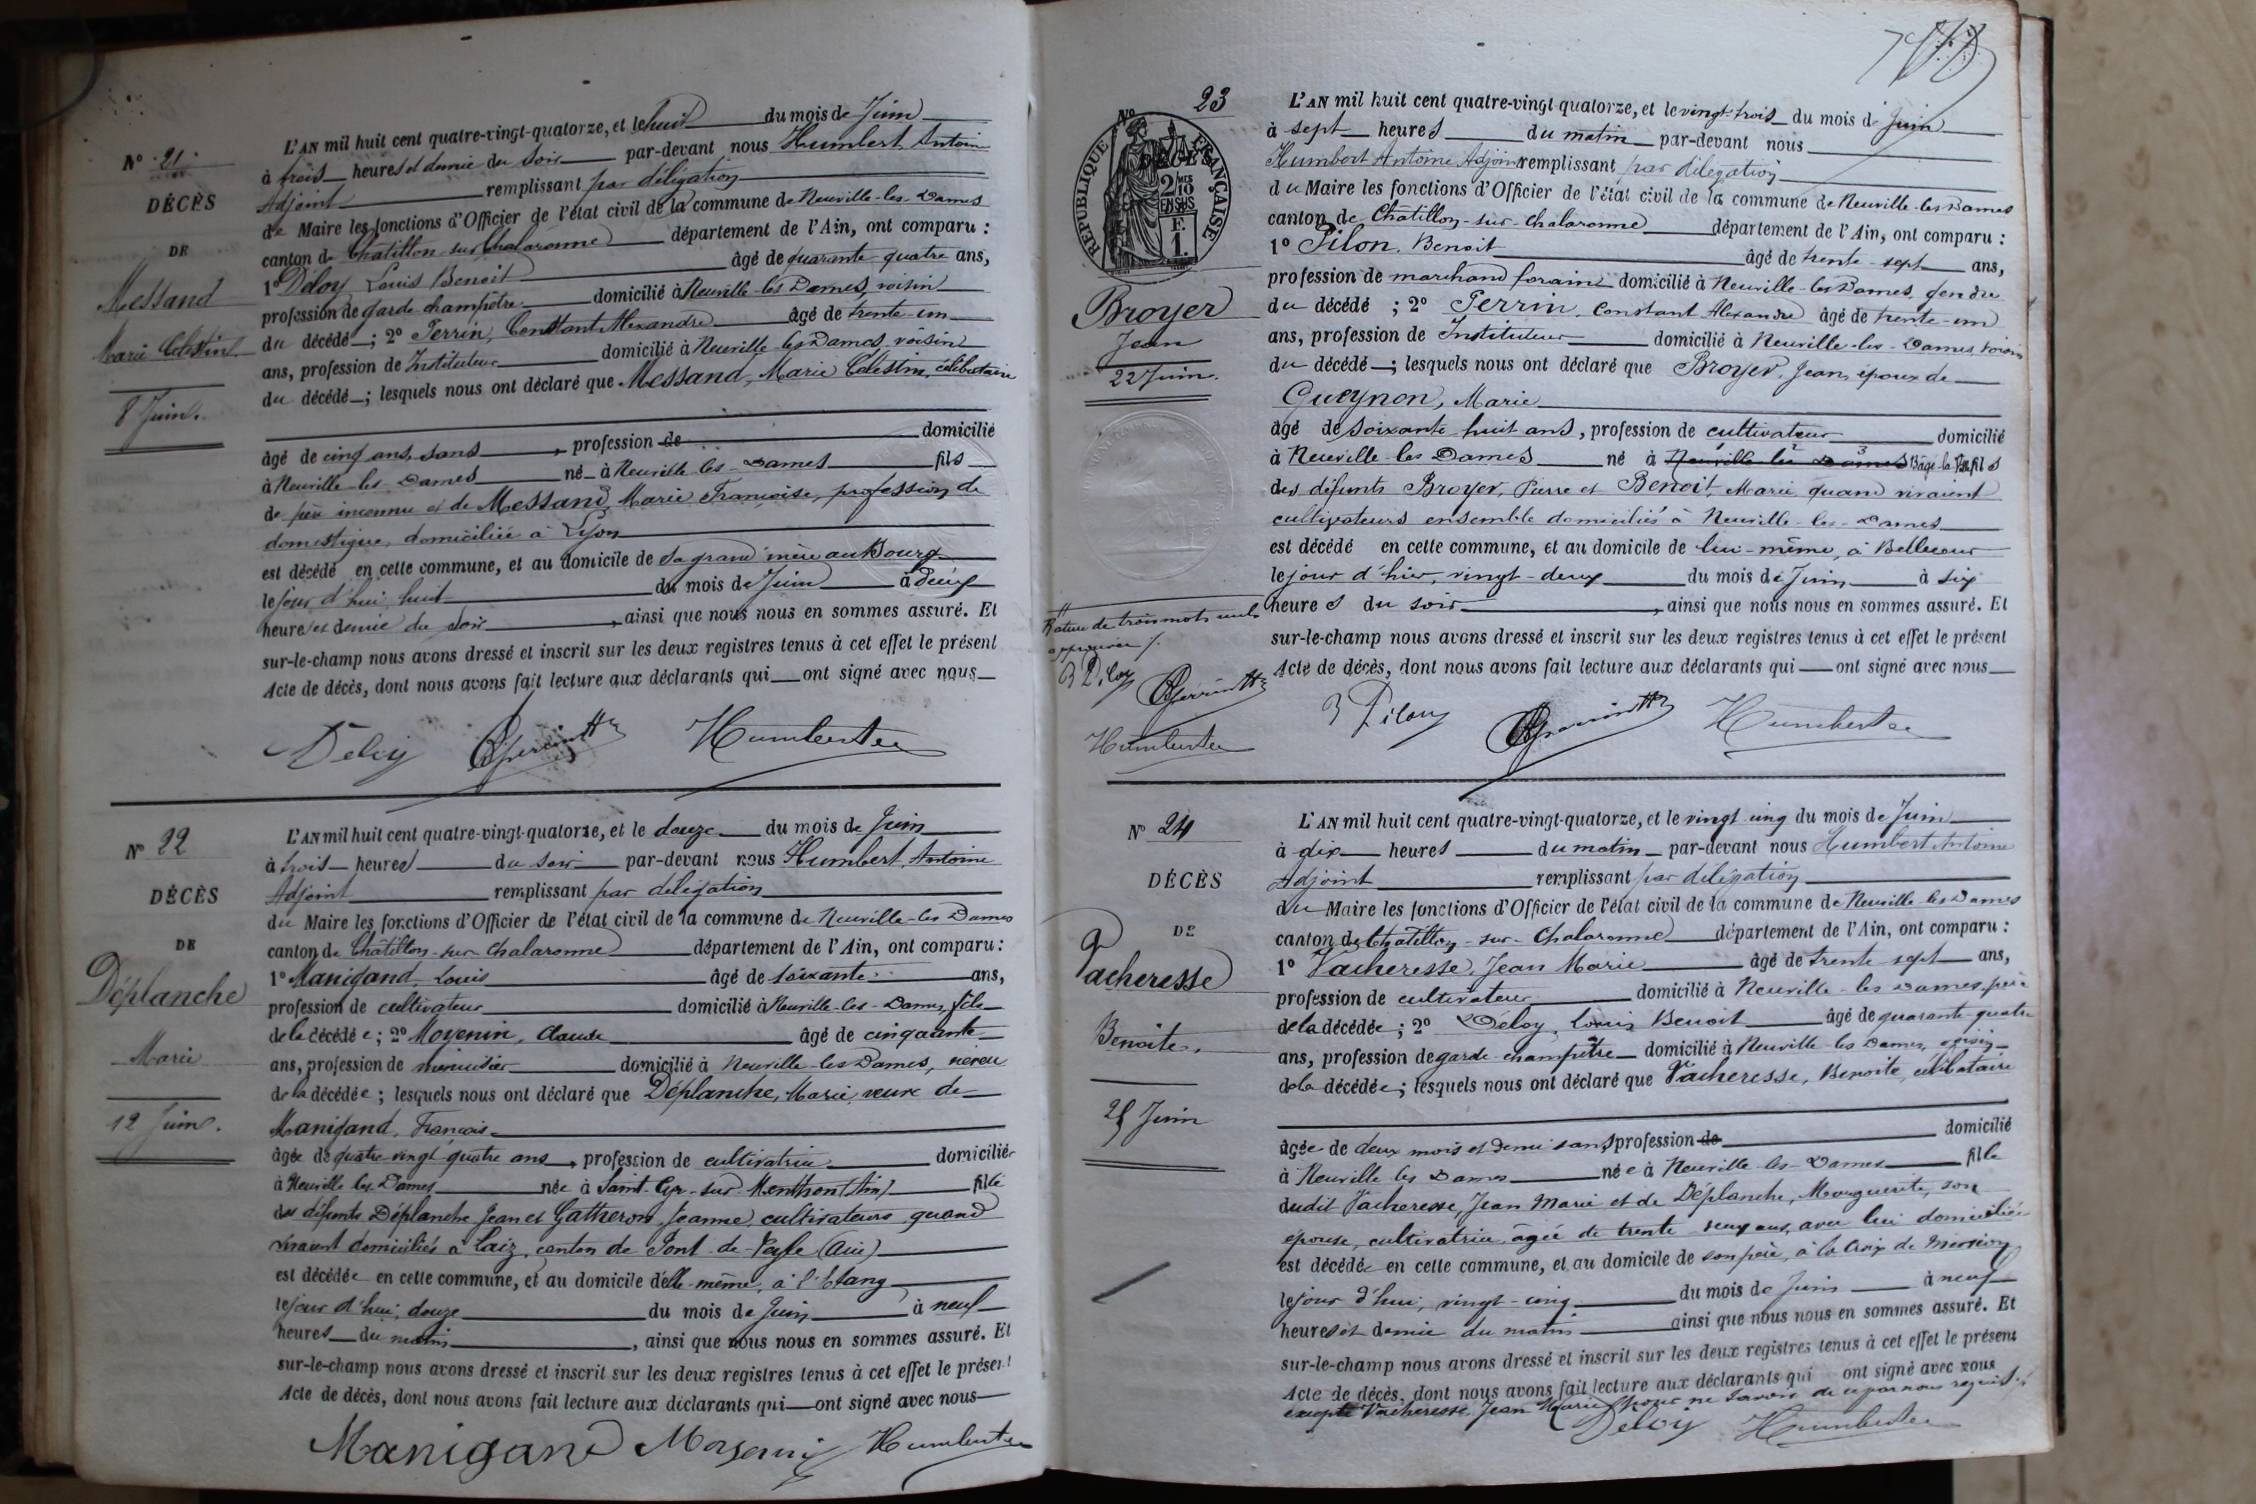 N° 21
DÉCÈS
DE
Messand
Marie Célestin
8 Juin.
L'AN mil huit cent quatre-vingt-quatorze, et le huit du mois de Juin
à trois heures et demie du soir par-devant nous Humbert Antoine
Adjoint remplissant par délégation
du Maire les fonctions d'Officier de l'état civil de la commune de Neuville-les-Dames
canton de Châtillon-sur-Chalaronne département de l'Ain, ont comparu :
1° Déloy Louis Benoit âgé de quarante-quatre ans,
profession de garde champêtre domicilié à Neuville-les-Dames, voisin
du décédé ; 2° Perrin, Constant Alexandre âgé de trente-un
ans, profession de Instituteur domicilié à Neuville-les-Dames voisin
du décédé ; lesquels nous ont déclaré que Messand, Marie Célestin, célibataire
âgé de cinq ans, sans , profession de domicilié
à Neuville-les-Dames né à Neuville-les-Dames fils
de père inconnu et de Messand, Marie Françoise, profession de
domestique, domiciliée à Lyon
est décédé en cette commune, et au domicile de sa grand'mère au Bourg
le jour d'hui, huit du mois de Juin à deux
heures et demie du soir , ainsi que nous nous en sommes assuré. Et
sur-le-champ nous avons dressé et inscrit sur les deux registres tenus à cet effet le présent
Acte de décès, dont nous avons fait lecture aux déclarants qui ont signé avec nous
Déloy Perrin Humbert
N° 22
DÉCÈS
DE
Déplanche
Marie
12 Juin.
L'AN mil huit cent quatre-vingt-quatorze, et le douze du mois de Juin
à trois heures du soir par-devant nous Humbert, Antoine
Adjoint remplissant par délégation
du Maire les fonctions d'Officier de l'état civil de la commune de Neuville-les-Dames
canton de Châtillon-sur-Chalaronne département de l'Ain, ont comparu :
1° Manigand, Louis âgé de soixante ans,
profession de cultivateur domicilié à Neuville-les-Dames, fils
de la décédée ; 2° Moyenin, Claude âgé de cinquante
ans, profession de menuisier domicilié à Neuville-les-Dames, neveu
de la décédée ; lesquels nous ont déclaré que Déplanche, Marie, veuve de
Manigand, François
âgée de quatre-vingt-quatre ans , profession de cultivatrice domiciliée
à Neuville-les-Dames née à Saint-Cyr-sur-Menthon (Ain) fille
des défunts Déplanche Jean et Gatheron, Jeanne, cultivateurs, quand
vivaient domiciliés à Laiz, canton de Pont-de-Veyle (Ain)
est décédée en cette commune, et au domicile d'elle-même, à l'Etang
le jour d'hui, douze du mois de Juin à neuf
heures du matin , ainsi que nous nous en sommes assuré. Et
sur-le-champ nous avons dressé et inscrit sur les deux registres tenus à cet effet le présent
Acte de décès, dont nous avons fait lecture aux déclarants qui ont signé avec nous
Manigand Moyenin Humbert
N° 23
RÉPUBLIQUE FRANÇAISE
2/10MES EN SUS
F. 1.
Broyer
Jean
22 Juin.
L'AN mil huit cent quatre-vingt-quatorze, et le vingt-trois du mois de Juin
à sept heures du matin par-devant nous
Humbert Antoine Adjoint remplissant par délégation
du Maire les fonctions d'Officier de l'état civil de la commune de Neuville-les-Dames
canton de Châtillon-sur-Chalaronne département de l'Ain, ont comparu :
1° Pilon, Benoit âgé de trente-sept ans,
profession de marchand forain domicilié à Neuville-les-Dames, gendre
du décédé ; 2° Perrin, Constant Alexandre âgé de trente-un
ans, profession de Instituteur domicilié à Neuville-les-Dames, voisin
du décédé ; lesquels nous ont déclaré que Broyer, Jean, époux de
Gueynon, Marie
âgé de soixante-huit ans , profession de cultivateur domicilié
à Neuville-les-Dames né à Neuville les Dames Bâgé-la-Ville fils
des défunts Broyer, Pierre et Benoit, Marie, quand vivaient
cultivateurs ensemble domiciliés à Neuville-les-Dames
est décédé en cette commune, et au domicile de lui-même, à Bellecour
le jour d'hier, vingt-deux du mois de Juin à six
heures du soir , ainsi que nous nous en sommes assuré. Et
sur-le-champ nous avons dressé et inscrit sur les deux registres tenus à cet effet le présent
Acte de décès, dont nous avons fait lecture aux déclarants qui ont signé avec nous
Rature de trois mots nuls
approuvée
B Pilon Perrin
Humbert
B Pilon Perrin Humbert
N° 24
DÉCÈS
DE
Vacheresse
Benoite.
25 Juin
L'AN mil huit cent quatre-vingt-quatorze, et le vingt-cinq du mois de Juin
à dix heures du matin par-devant nous Humbert Antoine
Adjoint remplissant par délégation
du Maire les fonctions d'Officier de l'état civil de la commune de Neuville-les-Dames
canton de Châtillon-sur-Chalaronne département de l'Ain, ont comparu :
1° Vacheresse, Jean Marie âgé de trente-sept ans,
profession de cultivateur domicilié à Neuville-les-Dames, père
de la décédée ; 2° Déloy, Louis Benoit âgé de quarante-quatre
ans, profession de garde-champêtre domicilié à Neuville-les-Dames, voisin
de la décédée ; lesquels nous ont déclaré que Vacheresse, Benoite, célibataire
âgée de deux mois et demi sans profession de domicilié
à Neuville-les-Dames née à Neuville-les-Dames fille
dudit Vacheresse, Jean Marie et de Déplanche, Marguerite, son
épouse, cultivatrice, âgée de trente-deux ans, avec lui domiciliée
est décédée en cette commune, et au domicile de son père, à la Croix de
le jour d'hui, vingt-cinq du mois de Juin à neuf
heures et demie du matin ainsi que nous nous en sommes assuré. Et
sur-le-champ nous avons dressé et inscrit sur les deux registres tenus à cet effet le présent
Acte de décès, dont nous avons fait lecture aux déclarants qui ont signé avec nous
excepté Vacheresse, Jean Marie pour ne savoir de ce par nous requis.
Déloy Humbert